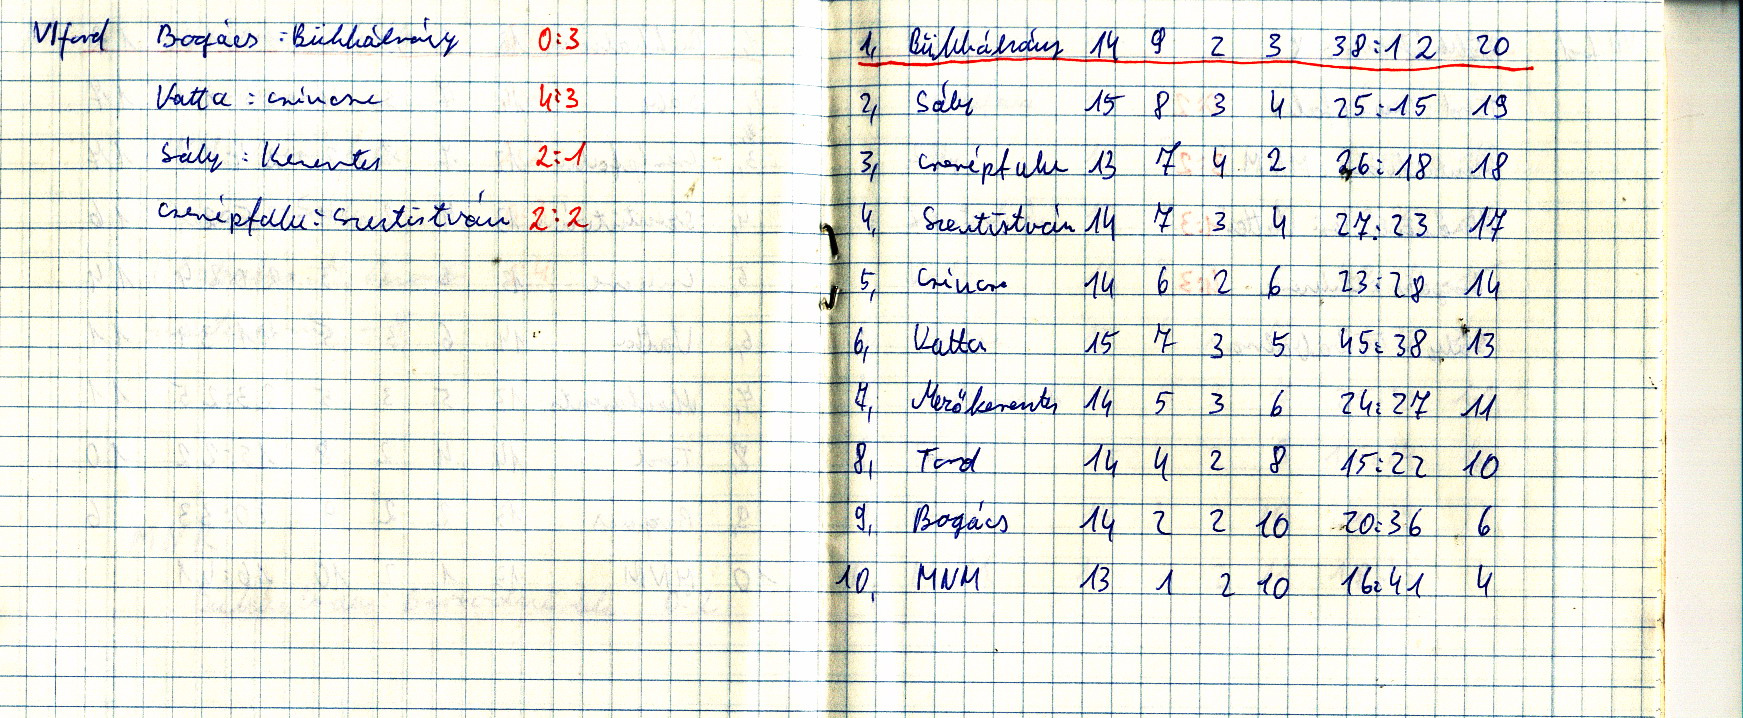 VI ford Bogács : Bükkábrány 0:3
Vatta : Csincse 4:3
Sály : Keresztes 2:1
Cserépfalu : Szentistván 2:2
1, Bükkábrány 14 9 2 3 38:12 20
2, Sály 15 8 3 4 25:15 19
3, Cserépfalu 13 7 4 2 26:18 18
4, Szentistván 14 7 3 4 27:23 17
5, Csincse 14 6 2 6 23:28 14
6, Vatta 15 7 3 5 45:38 13
7, Mezőkeresztes 14 5 3 6 24:27 11
8, Tard 14 4 2 8 15:22 10
9, Bogács 14 2 2 10 20:36 6
10, MNM 13 1 2 10 16:41 4